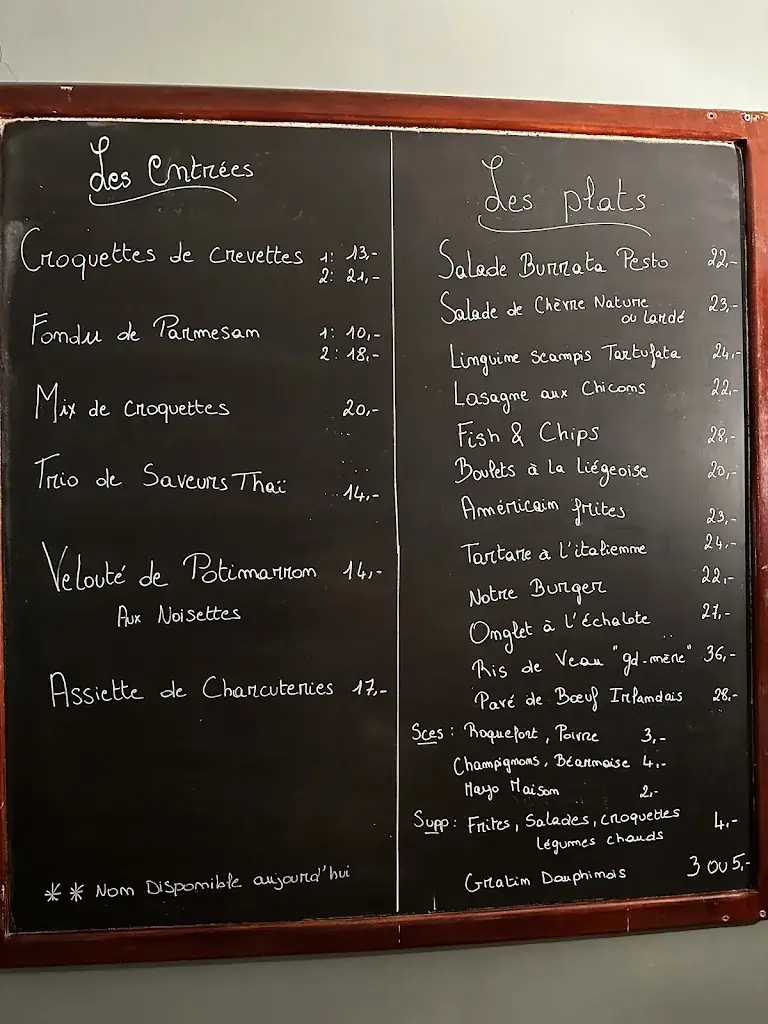 Les Entrées
Croquettes de crevettes 1: 13,-
2: 21,-
Fondu de Parmesan 1: 10,-
2: 18,-
Mix de croquettes 20,-
Trio de Saveurs Thaï 14,-
Velouté de Potimarron 14,-
Aux Noisettes
Assiette de Charcuteries 17,-
** Non Disponible aujourd'hui
Les plats
Salade Burrata Pesto 22,-
Salade de Chèvre Nature 23,-
ou lardé
Linguine scampis Tartufata 24,-
Lasagne aux Chicons 22,-
Fish & Chips 28,-
Boulets à la Liégeoise 20,-
Américain frites 23,-
Tartare à l'italienne 24,-
Notre Burger 22,-
Onglet à l'Échalote 27,-
Ris de Veau "gd-mère" 36,-
Pavé de Bœuf Irlandais 28,-
Sces : Roquefort, Poivre 3,-
Champignons, Béarnaise 4,-
Mayo Maison 2,-
Supp : Frites, Salades, croquettes 4,-
légumes chauds
Gratin Dauphinois 3 ou 5,-